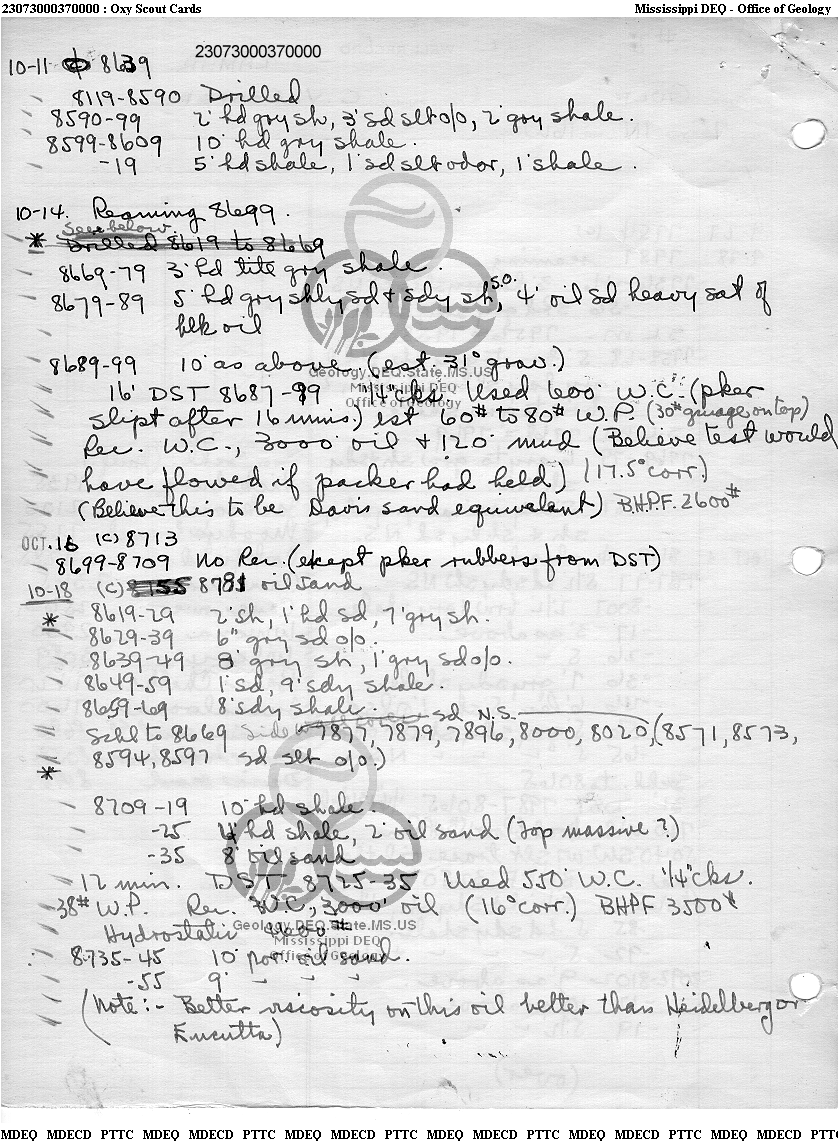 23073000370000 : Oxy Scout Cards
Mississippi DEQ - Office of Geology
23073000370000
10-11 8639
8119-8590 Drilled
8590-99 2' hd gry sh, 3' sd slt o/o, 2' gry shale.
8599-8609 10' hd gry shale.
-19 5' hd shale, 1' sd slt odor, 1' shale.
10-14. Reaming 8699.
See below
* Drilled 8619 to 8669
8669-79 3' hd tite gry shale.
8679-89 5' hd gry shly sd + sdy sh, S.O. 4' oil sd heavy sat of
blk oil
8689-99 10' as above. (est. 31° grav.)
Geology.DEQ.State.MS.US
Mississippi DEQ
Office of Geology
16' DST 8687-99 1/4" cks. Used 600' W.C. (pker
slipt after 16 mins.) est 60# to 80# W.P. (30# guage on top)
Rec. W.C., 3000' oil + 120' mud (Believe test would
have flowed if packer had held) (17.5° corr.)
(Believe this to be Davis sand equivalent) B.H.P.F. 2600#
OCT. 16 (C) 8713
8699-8709 No Rec. (exept pker rubbers from DST)
10-18 (C) 8755 8781 oil sand
* 8619-29 2' sh, 1' hd sd, 7' gry sh.
8629-39 6" gry sd o/o.
8639-49 8' gry sh, 1' gry sd o/o.
8649-59 1' sd, 9' sdy shale.
8659-69 8' sdy shale.
Schl to 8669 Sidewall cores sd N.S. 7877, 7879, 7896, 8000, 8020, (8571, 8573,
8594, 8597 sd slt o/o.)
*
8709-19 10' hd shale
-25 4' hd shale, 2' oil sand (Top massive?)
-35 8' oil sand
12 min. DST 8725-35 Used 550' W.C. 1/4" cks.
38# W.P. Rec. W.C., 3000' oil (16° corr.) BHPF 3500#
Hydrostatic 4600#
Geology.DEQ.State.MS.US
Mississippi DEQ
Office of Geology
8735-45 10' por. oil sand.
-55 9' - - -
(Note:- Better viscosity on this oil better than Heidelberg or
Eucutta)
MDEQ MDECD PTTC MDEQ MDECD PTTC MDEQ MDECD PTTC MDEQ MDECD PTTC MDEQ MDECD PTTC MDEQ MDECD PTTC